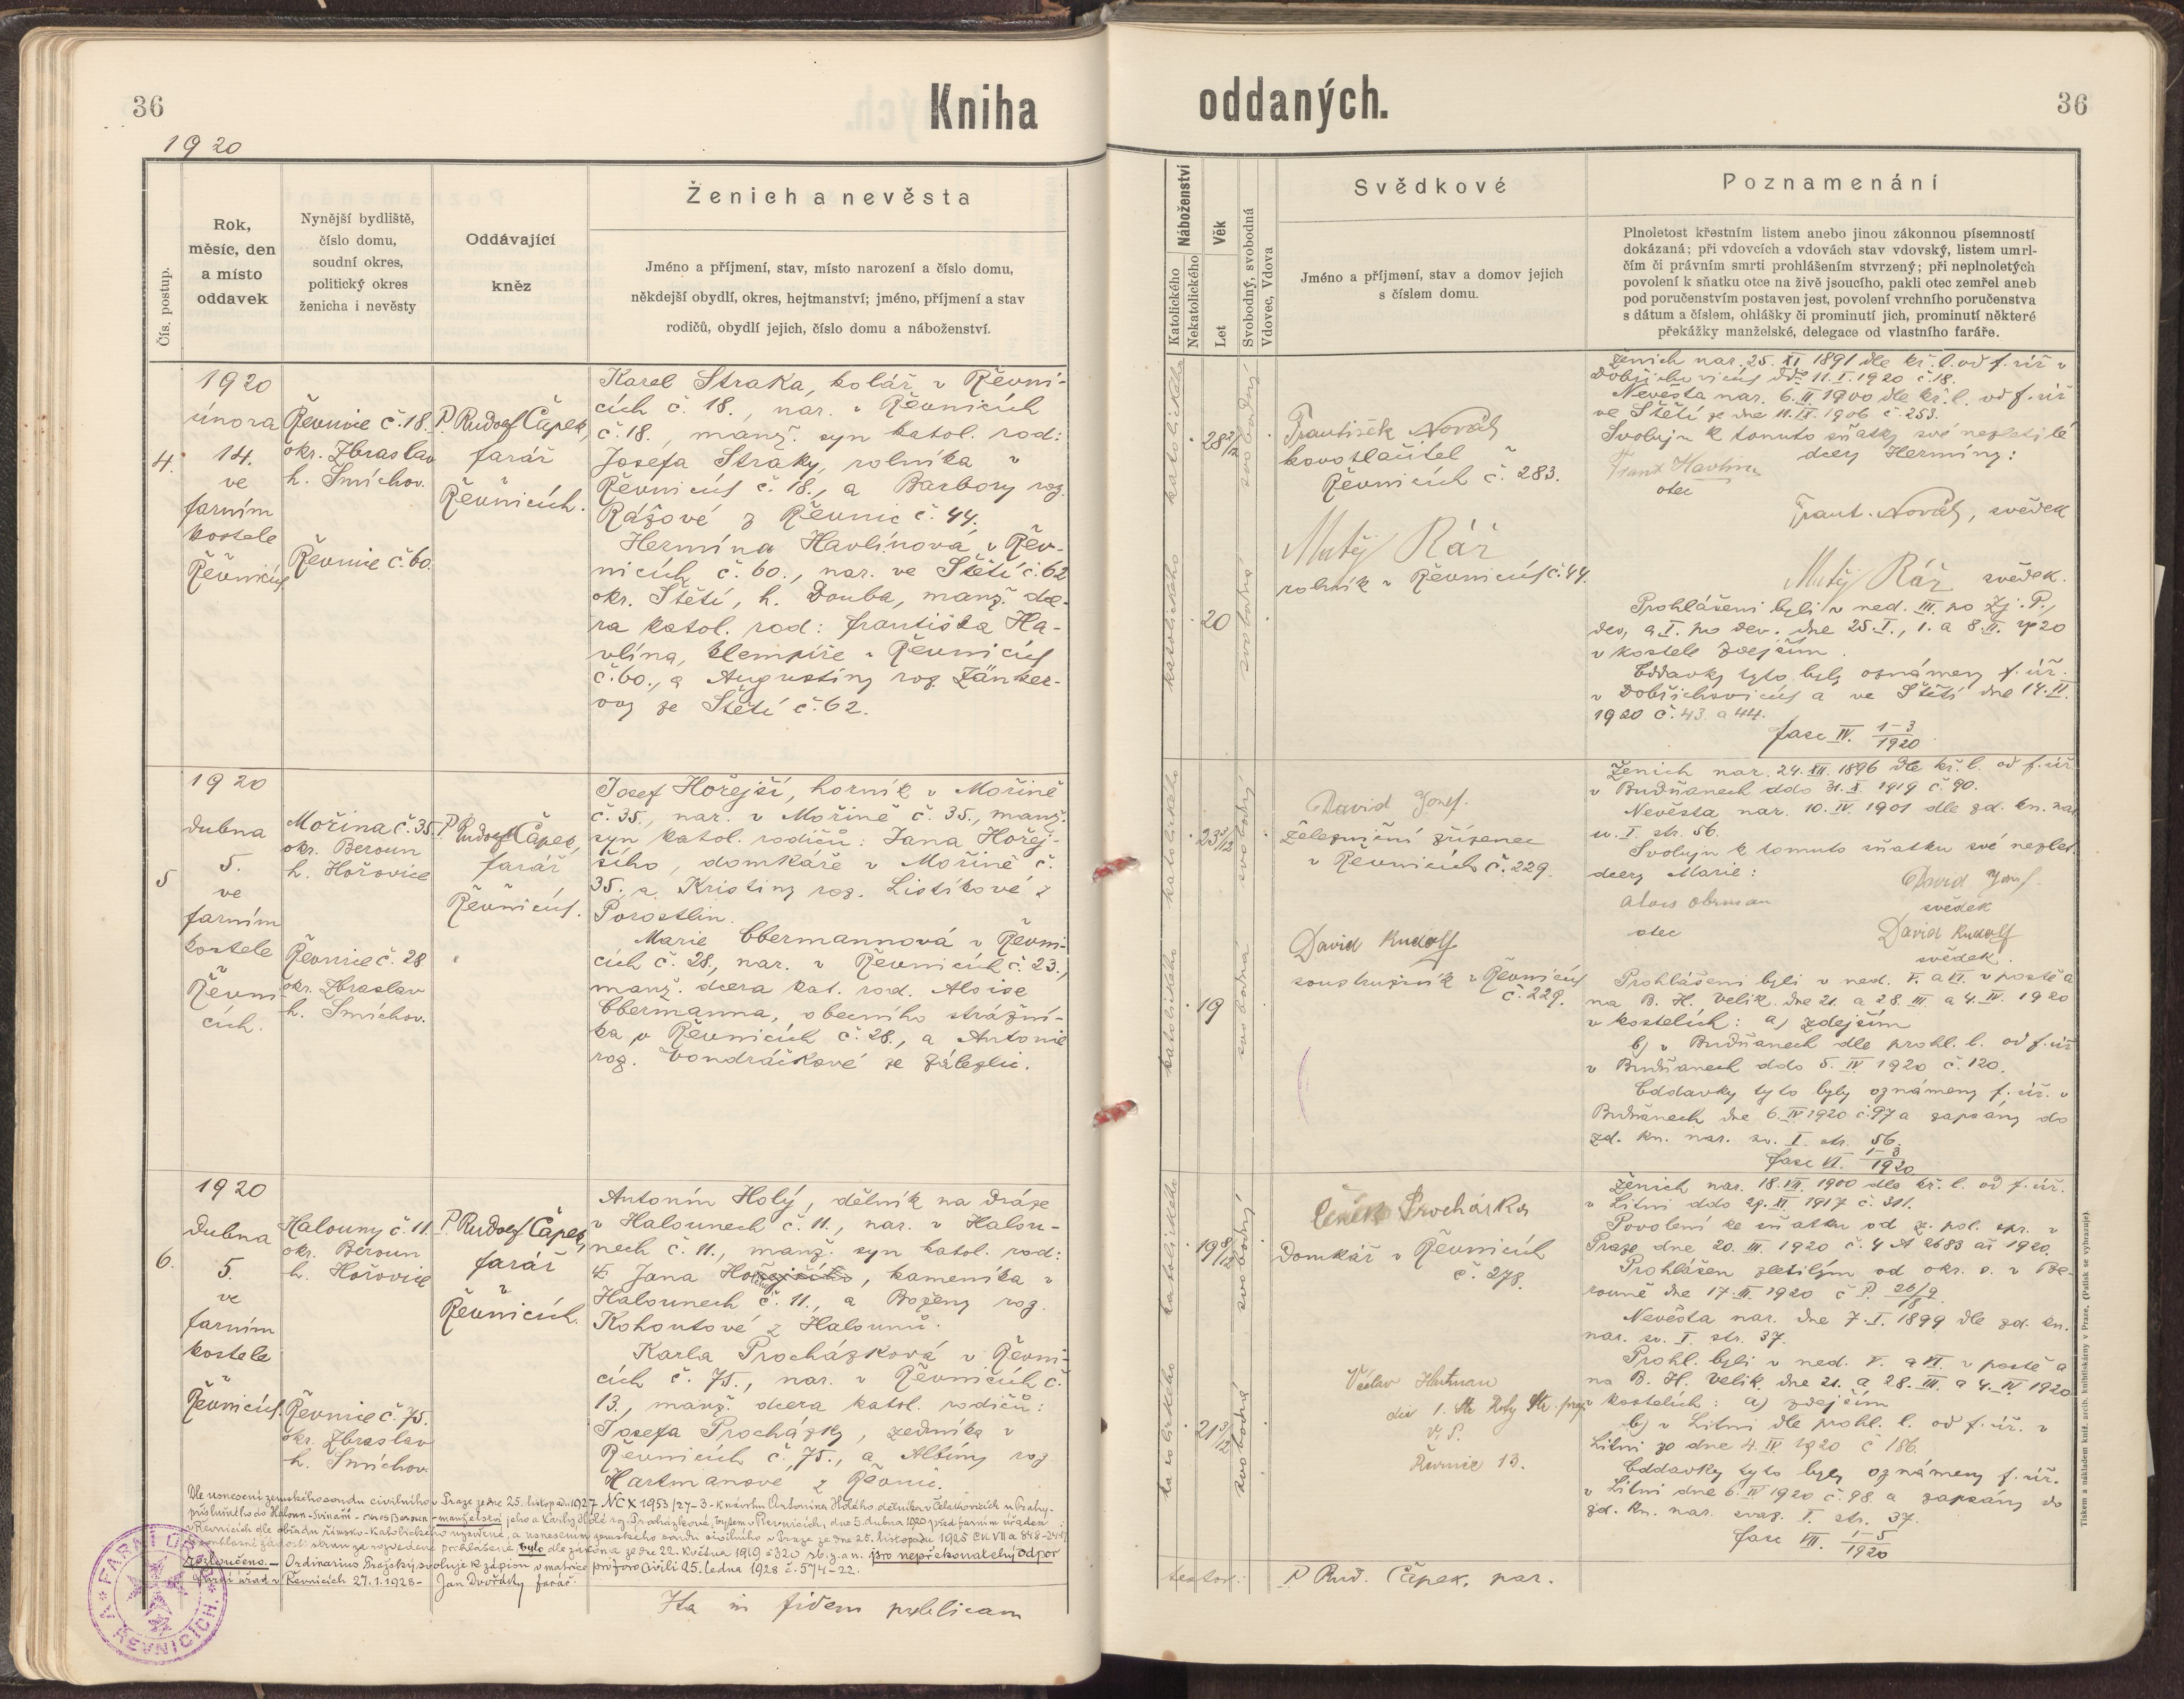 36
Kniha
oddaných.
36
1920
Čís. postup.
Rok,
měsíc, den
a místo
oddavek
Nynější bydliště,
číslo domu,
soudní okres,
politický okres
ženicha i nevěsty
Oddávající
kněz
Ženich a nevěsta
Jméno a příjmení, stav, místo narození a číslo domu,
někdejší obydlí, okres, hejtmanství; jméno, příjmení a stav
rodičů, obydlí jejich, číslo domu a náboženství.
Náboženství
Katolického
Nekatolického
Věk
Let
Svobodný, svobodná
Vdovec, Vdova
Svědkové
Jméno a příjmení, stav a domov jejich
s číslem domu.
Poznamenání
Plnoletost křestním listem anebo jinou zákonnou písemností
dokázaná; při vdovcích a vdovách stav vdovský, listem umrl-
čím či právním smrti prohlášením stvrzený; při neplnoletých
povolení k sňatku otce na živě jsoucího, pakli otec zemřel aneb
pod poručenstvím postaven jest, povolení vrchního poručenstva
s dátum a číslem, ohlášky či prominutí jich, prominutí některé
překážky manželské, delegace od vlastního faráře.
4.
1920
února
14.
ve
farním
kostele
v
Řevnicích
Řevnice č. 18.
okr. Zbraslav
h. Smíchov.
Řevnice č. 60.
P. Rudolf Čapek,
farář
v
Řevnicích.
Karel Straka, kolář v Řevni-
cích č. 18., nar. v Řevnicích
č. 18., manž. syn katol. rod:
Josefa Straky, rolníka v
Řevnicích č. 18., a Barbory roz.
Rážové z Řevnic č. 44.
Hermína Havlínová v Řev-
nicích č. 60., nar. ve Štětí č. 62
okr. Štětí, h. Douba, manž. dce-
ra katol. rod: Františka Ha-
vlína, klempíře v Řevnicích
č. 60., a Augustiny roz. Zänker-
ovy ze Štětí č. 62.
katolického
28 2/12
svobodný
katolického
20
svobodná
František Novák
kovotlačitel v
Řevnicích č. 283.
Matěj Ráž
rolník v Řevnicích č. 44.
Ženich nar. 25. XI. 1891 dle kř. l. od f. úř. v
Dobřichovicích ddo 11. I. 1920 č. 18.
Nevěsta nar. 6. II. 1900 dle kř. l. od f. úř.
ve Štětí ze dne 11. IX. 1906 č. 253.
Svoluji k tomuto sňatky své nezletilé
dcery Hermíny:
Frant Havlín
otec
Frant. Novák, svědek
Matěj Ráž svědek.
Prohlášeni byli v ned. III. po Zj. P.,
dev, a I. po dev. dne 25. I., 1. a 8. II. 1920
v kostele zdejším.
Oddavky tyto byly oznámeny f. úř.
v Dobřichovicích a ve Štětí dne 14. II.
1920 č. 43. a 44.
fasc IV. 1-3/1920
5
1920
dubna
5.
ve
farním
kostele
v
Řevni-
cích.
Mořina č. 35.
okr. Beroun
h. Hořovice
Řevnice č. 28
okr. Zbraslav
h. Smíchov.
P. Rudolf Čapek,
farář
v
Řevnicích.
Josef Hořejší, horník v Mořině
č. 35., nar. v Mořině č. 35., manž.
syn katol. rodičů: Jana Hořej-
šího, domkáře v Mořině č.
35. a Kristiny roz. Lístíkové z
Porostlin.
Marie Obermannová v Řevni-
cích č. 28., nar. v Řevnicích č. 23.,
manž. dcera kat. rod. Aloise
Obermanna, obecního strážní-
ka v Řevnicích č. 28., a Antonie
roz. Vondráčkové ze Zálezlic.
katolického
23 3/12
svobodný
katolického
19
svobodná
David Josef.
železniční zřízenec
v Řevnicích č. 229.
David Rudolf
soustružník v Řevnicích
č. 229.
Ženich nar. 24. XII. 1896 dle kř. l. od f. úř.
v Budňanech ddo 31. X. 1919 č. 90.
Nevěsta nar. 10. IV. 1901 dle zd. kn. nar.
sv. I. str. 56.
Svoluji k tomuto sňatku své nezlet.
dcery Marie:
David Josef
svědek
Alois Obrman
otec
David Rudolf
svědek.
Prohlášeni byli v ned. V. a VI. v postě a
na B. H. Velik. dne 21. a 28. III. a 4. IV. 1920
v kostelích: a) zdejším
b) v Budňanech dle prohl. l. od f. úř.
v Budňanech ddo 5. IV 1920 č. 120.
Oddavky tyto byly oznámeny f. úř. v
Budňanech dne 6. IV 1920 č. 97 a zapsány do
zd. kn. nar. sv. I. str. 56.
fasc VI. 1-3/1920
6.
1920
dubna
5.
ve
farním
kostele
v
Řevnicích.
Halouny č. 11.
okr. Beroun
h. Hořovice
Řevnice č. 75.
okr. Zbraslav
h. Smíchov.
P. Rudolf Čapek,
farář
v
Řevnicích.
Antonín Holý, dělník na dráze
v Halounech č. 11., nar. v Halou-
nech č. 11., manž. syn katol. rod:
Jana Hořejšího, kameníka v
Halounech č. 11., a Boženy roz.
Kohoutové z Halounů.
Karla Procházková v Řevni-
cích č. 75., nar. v Řevnicích č.
13., manž. dcera katol. rodičů:
Josefa Procházky, zedníka v
Řevnicích č. 75., a Albíny roz.
Hartmanové z Řevnic.
katolického
19 8/12
svobodný
katolického
21 3/12
svobodná
Čeněk Procházka
Domkář v Řevnicích
č. 278.
Hutman
V. S.
Řevnice 13.
Ženich nar. 18. VII. 1900 dle kř. l. od f. úř.
v Litni ddo 29. XI. 1917 č. 311.
Povolení ke sňatku od z. pol. spr. v
Praze dne 20. III. 1920 č. 4 A 2683 ai 1920.
Prohlášen zletilým od okr. s. v Be-
rouně dne 17. III. 1920 č. P. 26/9/18
Nevěsta nar. dne 7. I. 1899 dle zd. kn.
nar. sv. I. str. 37.
Prohl. byli v ned. V. a VI. v postě a
na B. H. Velik. dne 21. a 28. III. a 4. IV 1920
v kostelích: a) zdejším
b) v Litni dle prohl. l. od f. úř. v
Litni ze dne 4. IV 1920 č 186.
Oddavky tyto byly oznámeny f. úř.
v Litni dne 6. IV 1920 č. 98. a zapsány do
zd. kn. nar. svaz. I. str. 37.
fasc VII. 1-5/1920
Dle usnesení zemského soudu civilního v Praze ze dne 25. listopadu 1927 NC X 1953/27-3 - k návrhu Antonína Holého, dělníka v Čelakovicích u Prahy -
příslušného do Haloun - Svinaří - okres Beroun - manželství jeho a Karly Holé roz. Procházkové, bytem v Řevnicích, dne 5. dubna 1920 před farním úřadem
v Řevnicích dle obřadu římsko-katolického uzavřené, a usnesením zemského soudu civilního v Praze ze dne 25. listopadu 1925
za rozvedené prohlášené bylo dle zákona ze dne 22. května 1919 č 320 sb. z. a n. pro nepřekonatelný odpor
rozloučeno. - Ordinariát Pražský svoluje k zápisu v matrice pro foro civili 25. ledna 1928 č. 574-22.
Farní úřad v Řevnicích 27. 1. 1928 - Jan Dvořák farář.
FARNÍ ÚŘAD
V ŘEVNICÍCH
Ita in fidem publicam
testor:
P Rud. Čapek, par.
Tiskem a nákladem kníž. arcib. knihtiskárny v Praze. (Patisk se vyhrazuje).